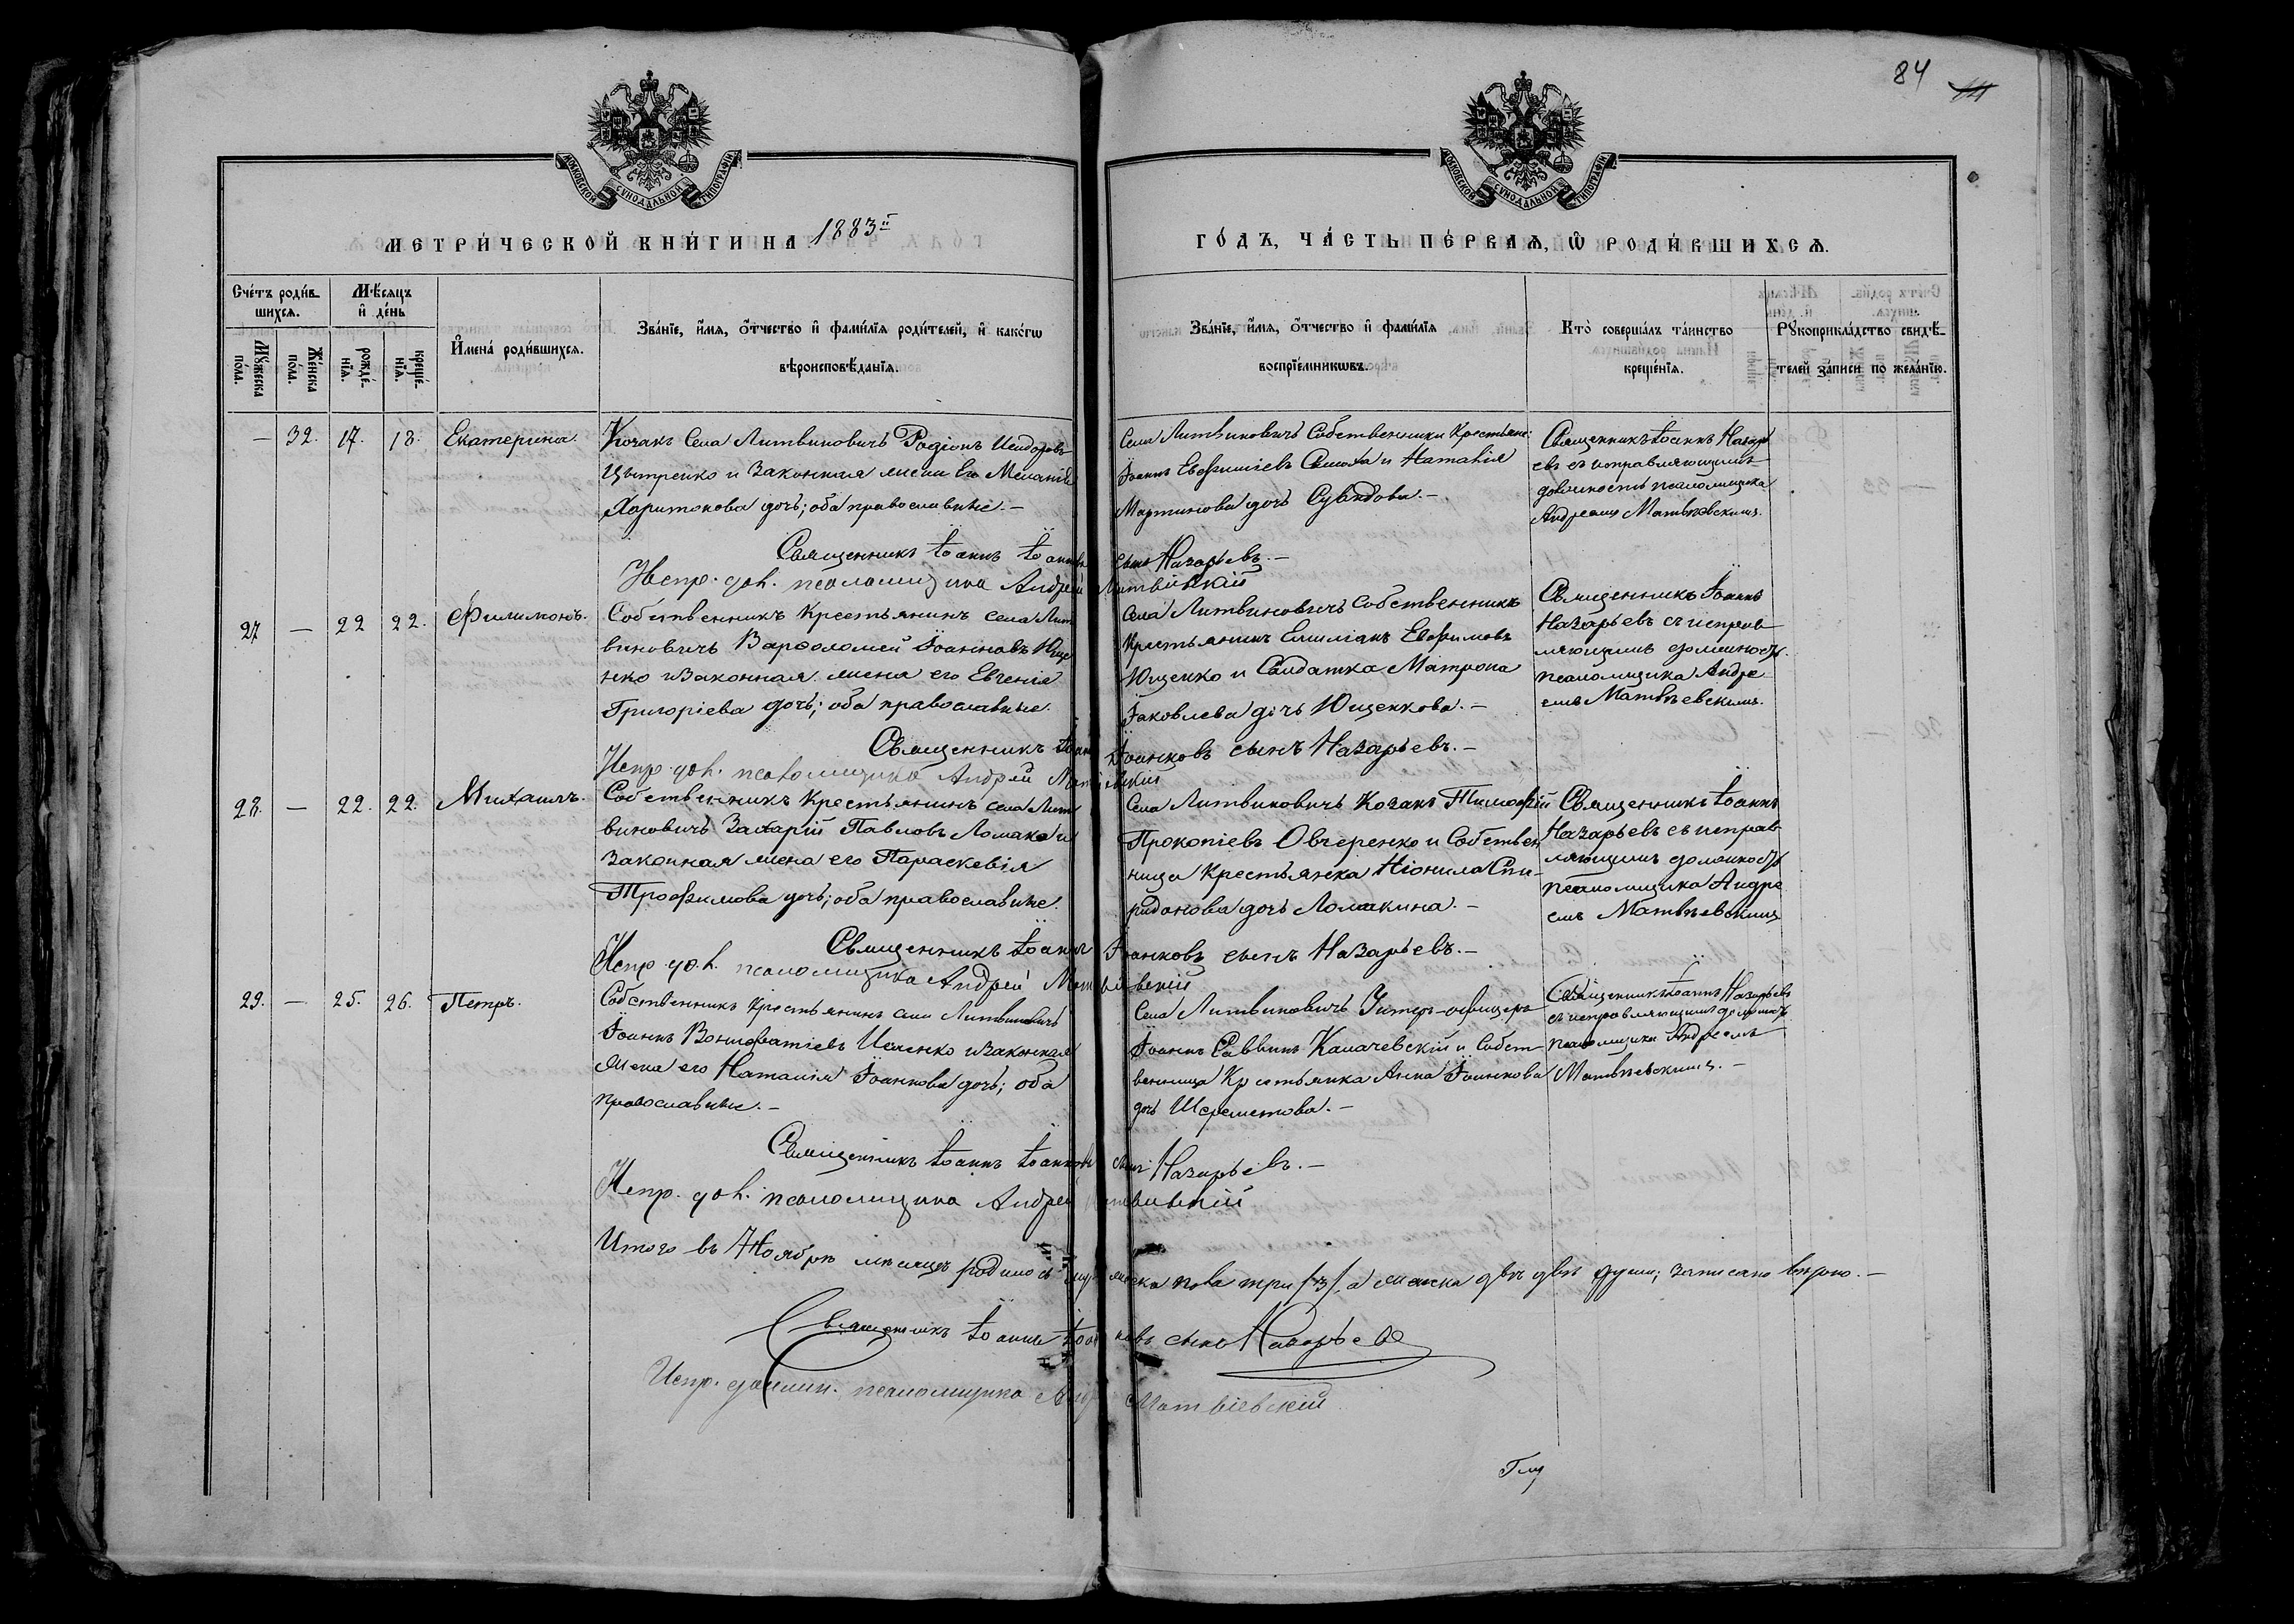 84
МОСКОВСКОЙ СѴНОДАЛЬНОЙ ТИПОГРАФІИ
МОСКОВСКОЙ СѴНОДАЛЬНОЙ ТИПОГРАФІИ
МЕТРИ́ЧЕСКОЙ КНИ́ГИ НА 1883й
ГО́ДЪ, ЧА́СТЬ ПЕ́РВАѦ, Ѽ РОДИ́ВШИХСѦ.
Сче́тъ роди́в-
шихся.
Мѣ́сяцъ
и҆ де́нь
Мꙋ́жеска по́ла.
Же́нска по́ла.
рожде́-
нїя.
креще́-
нїя.
И҆мена̀ роди́вшихся.
Зва́нїе, и҆́мя, ѻ҆́тчество и҆ фами́лїя роди́телей, и҆ како́гѡ
вѣроисповѣ́данїя.
Зва́нїе, и҆́мя, ѻ҆́тчество и҆ фами́лїя
воспрїе́мникѡвъ.
Кто̀ соверша́лъ та́инство
креще́нїя.
Рꙋкоприкла́дство свидѣ́-
телей за́писи по жела́нїю.
— 32. 17. 18. Екатерина.
Козакъ Села Литвиновичъ Родіонъ Исидоровъ
и Законная жена Его Меланія
Харитонова дочь; оба православные. —
Села Литвиновичъ Собственники Крестьяне:
Іоаннъ Евфиміевъ и Наталія
Мартинова дочь
Священникъ Іоаннъ Назарь
евъ съ исправляющимъ
должность псаломщика
Андреемъ Матвѣевскимъ.
Священникъ Іоаннъ Іоанновъ сынъ Назарьевъ. —
Испр. дол. псаломщика Андрей Матвіевскій
27 — 22 22. Филимонъ.
Собственникъ Крестьянинъ села Лит
виновичъ Варѳоломей Іоанновъ Юще
нко и Законная жена его Евгенія
Григоріева дочь; оба православные.
Села Литвиновичъ Собственникъ
Крестьянинъ Емиліанъ Евфимовъ
Ющенко и Солдатка Матрона
Іаковлева дочь Ющенкова. —
Священникъ Іоаннъ
Назарьевъ съ исправ
ляющимъ должность
псаломщика Андре
емъ Матвѣевскимъ.
Священникъ Іоаннъ Іоанновъ сынъ Назарьевъ. —
Испр. дол. псаломщика Андрей Матвіевскій
28. — 22. 22. Михаилъ.
Собственникъ Крестьянинъ села Лит
виновичъ Захарій Павловъ Ломака и
Законная жена его Параскевія
Трофимова дочь; оба православные.
Села Литвиновичъ Козакъ Тимофей
Прокопіевъ Овчеренко и Собствен
ница Крестьянка Ніонила Спи-
ридонова дочь Ломакина. —
Священникъ Іоаннъ
Назарьевъ съ исправ
ляющимъ должность
псаломщика Андре
емъ Матвѣевскимъ
Священникъ Іоаннъ Іоанновъ сынъ Назарьевъ. —
Испр. дол. псаломщика Андрей Матвіевскій
29. — 25. 26. Петръ.
Собственникъ Крестьянинъ села Литвиновичъ
Іоаннъ Вонифатіевъ и законная
жена его Наталія Іоаннова дочь; оба
православные. —
Села Литвиновичъ Унтеръ-офицеръ
Іоаннъ Саввинъ Калачевскій и Собст-
венница Крестьянка Анна Іоаннова
дочь Шереметова. —
Священникъ Іоаннъ Назарьевъ
съ исправляющимъ должность
псаломщика Андреемъ
Матвѣевскимъ. —
Священникъ Іоаннъ Іоанновъ сынъ Назарьевъ. —
Испр. дол. псаломщика Андрей Матвіевскій
Итого въ Ноябрѣ мѣсяцѣ родилось мужеска пола три /3/, а женска двѣ души; записано вѣрно. —
Священникъ Іоаннъ Іоанновъ сынъ Назарьевъ
Испр. должн. псаломщика Андрей Матвіевскій